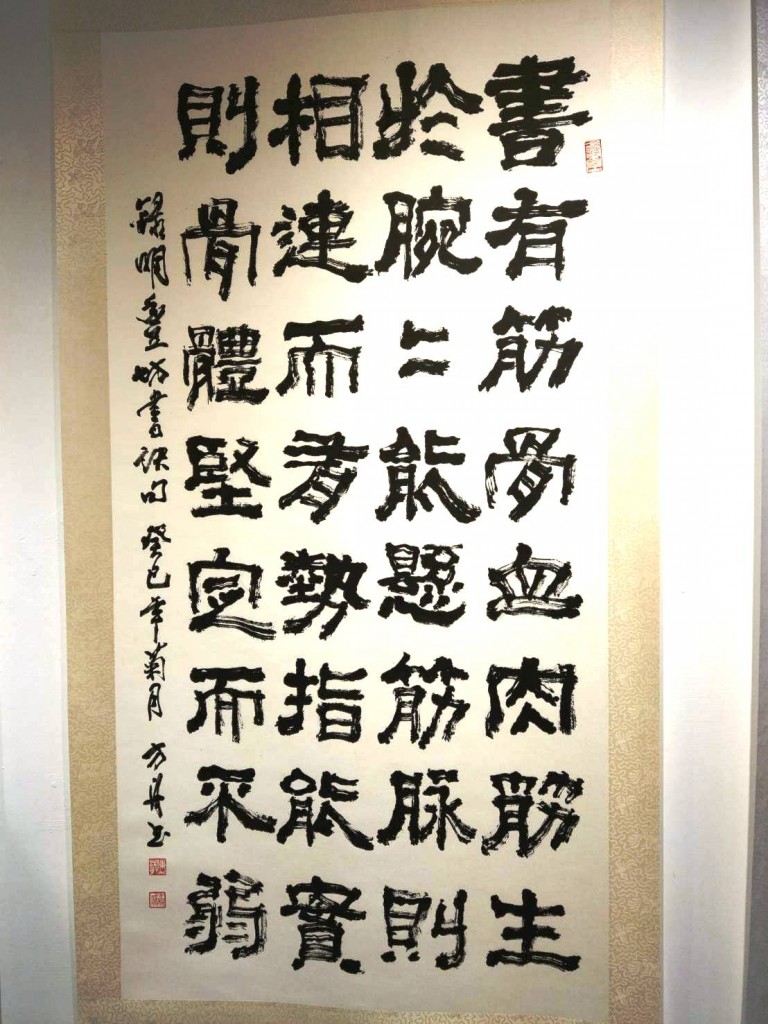 書有筋骨血肉筋生
於腕二能懸筋脉則
相連而有勢指能實
則骨體堅定而不弱
錄明豐坊書訣句 癸巳年菊月 方丹书